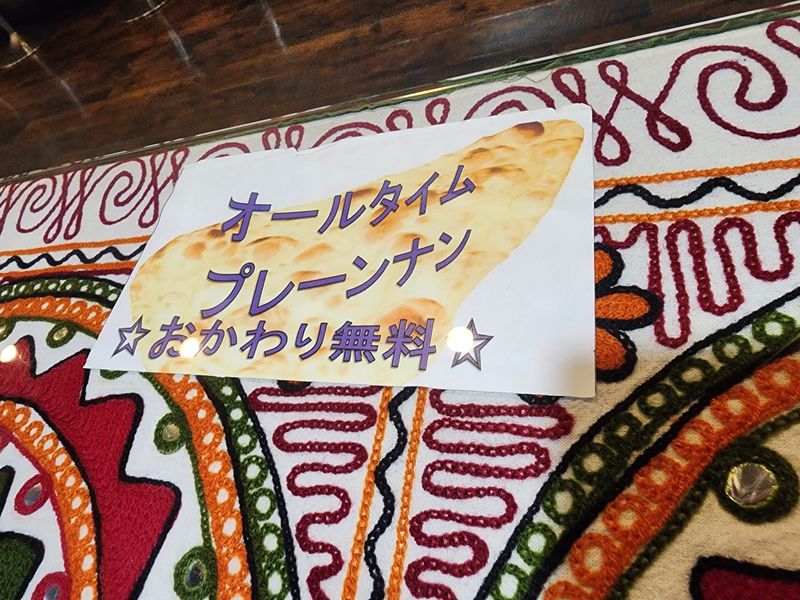 オールタイム
プレーンナン
☆おかわり無料☆